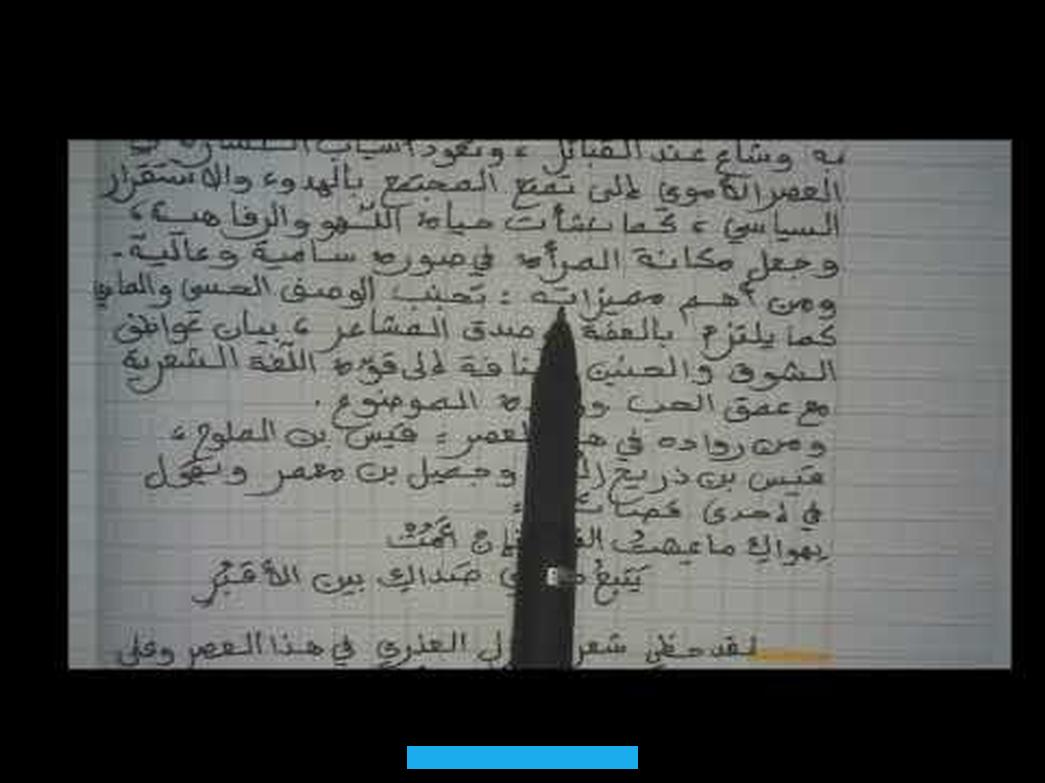 به وشاع عند القبائل ، وتعود أسباب
العصر الأموي إلى تمتع المجتمع بالهدوء والاستقرار
السياسي ، كما نشأت حياة اللهو والرفاهية ،
وجعل مكانة المرأة في صورة سامية وعالية .
ومن أهم مميزاته : تجنب الوصف الحسي والمادي
كما يلتزم بالعفة صدق المشاعر ، بيان عواطف
الشوق والحنين إلى قوة اللغة الشعرية
مع عمق الحب الموضوع .
ومن رواده في العصر : قيس بن الملوح ،
قيس بن ذريح وجميل بن معمر ويقول
في إحدى
يهواك ما عشت أمت
يتبع صداك بين الأقبر
لقد حظي شعر العذري في هذا العصر وعلى